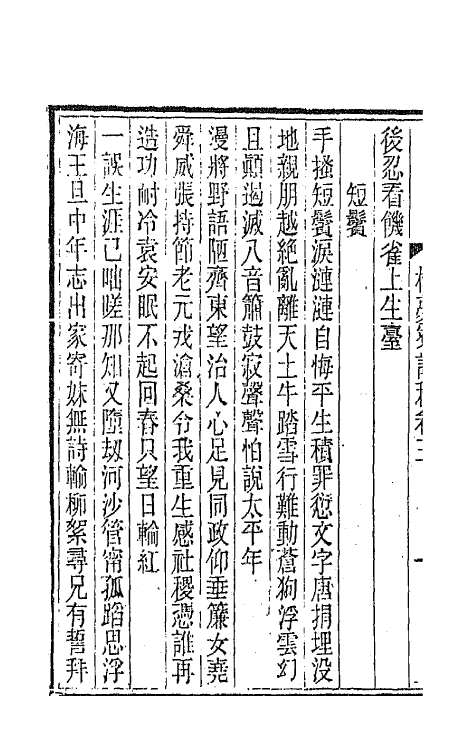 後忍看饑雀上生臺
短鬢
手搔短鬢淚漣漣自悔平生積罪愆文字唐捐埋没
地親朋越絶亂離天土牛踏雪行難動蒼狗浮雲幻
且顛遏滅八音簫鼓寂聲聲怕說太平年
漫將野語陋齊東望治人心足見同政仰垂簾女堯
舜威張持節老元戎滄桑令我重生感社稷憑誰再
造功耐冷袁安眠不起回春只望日輪紅
一誤生涯已咄嗟那知又墮劫河沙管甯孤蹈思浮
海王旦中年志出家寄妹無詩輸柳絮尋兄有誓拜